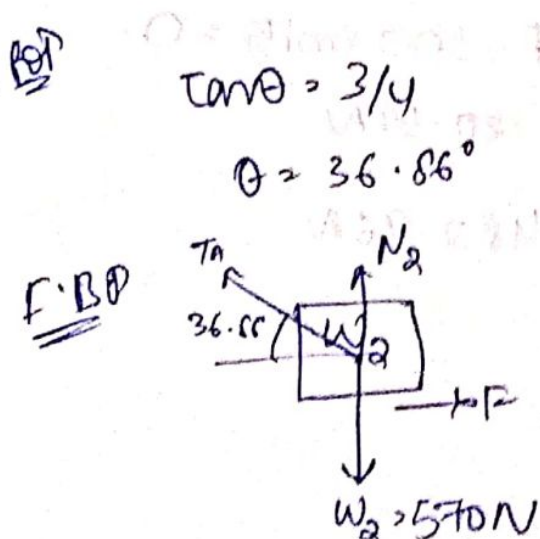 tanθ = 3/4
θ = 36.86°
F.B.D
TA
N2
36.86
W2
F
W2 = 570N